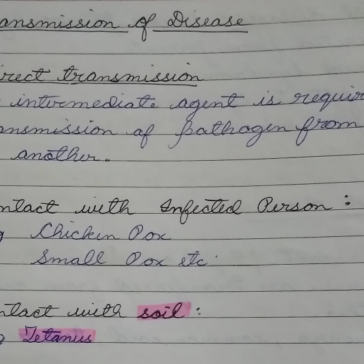 ansmission of Disease
irect transmission
intermediate agent is requir
ansmission of pathogen from
another.
ntact with Infected Person :
g Chicken Pox
Small Pox etc.
ntact with soil :
g Tetanus